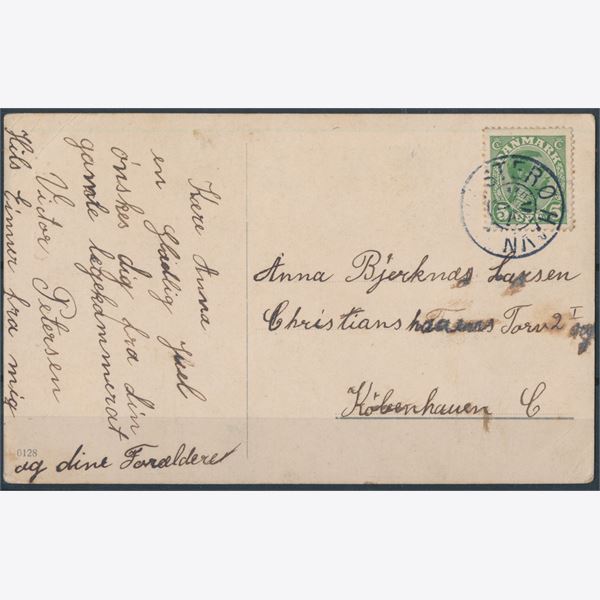 Kære Anna
en Glædlig Juel
ønskes dig fra din
gamle legekammerat
Victor Petersen
Hils Einner fra mig
og dine Forældere
0128
DANMARK
5
Anna Bjerknæs Larsen
Christianshavns Torv 2 I
København C